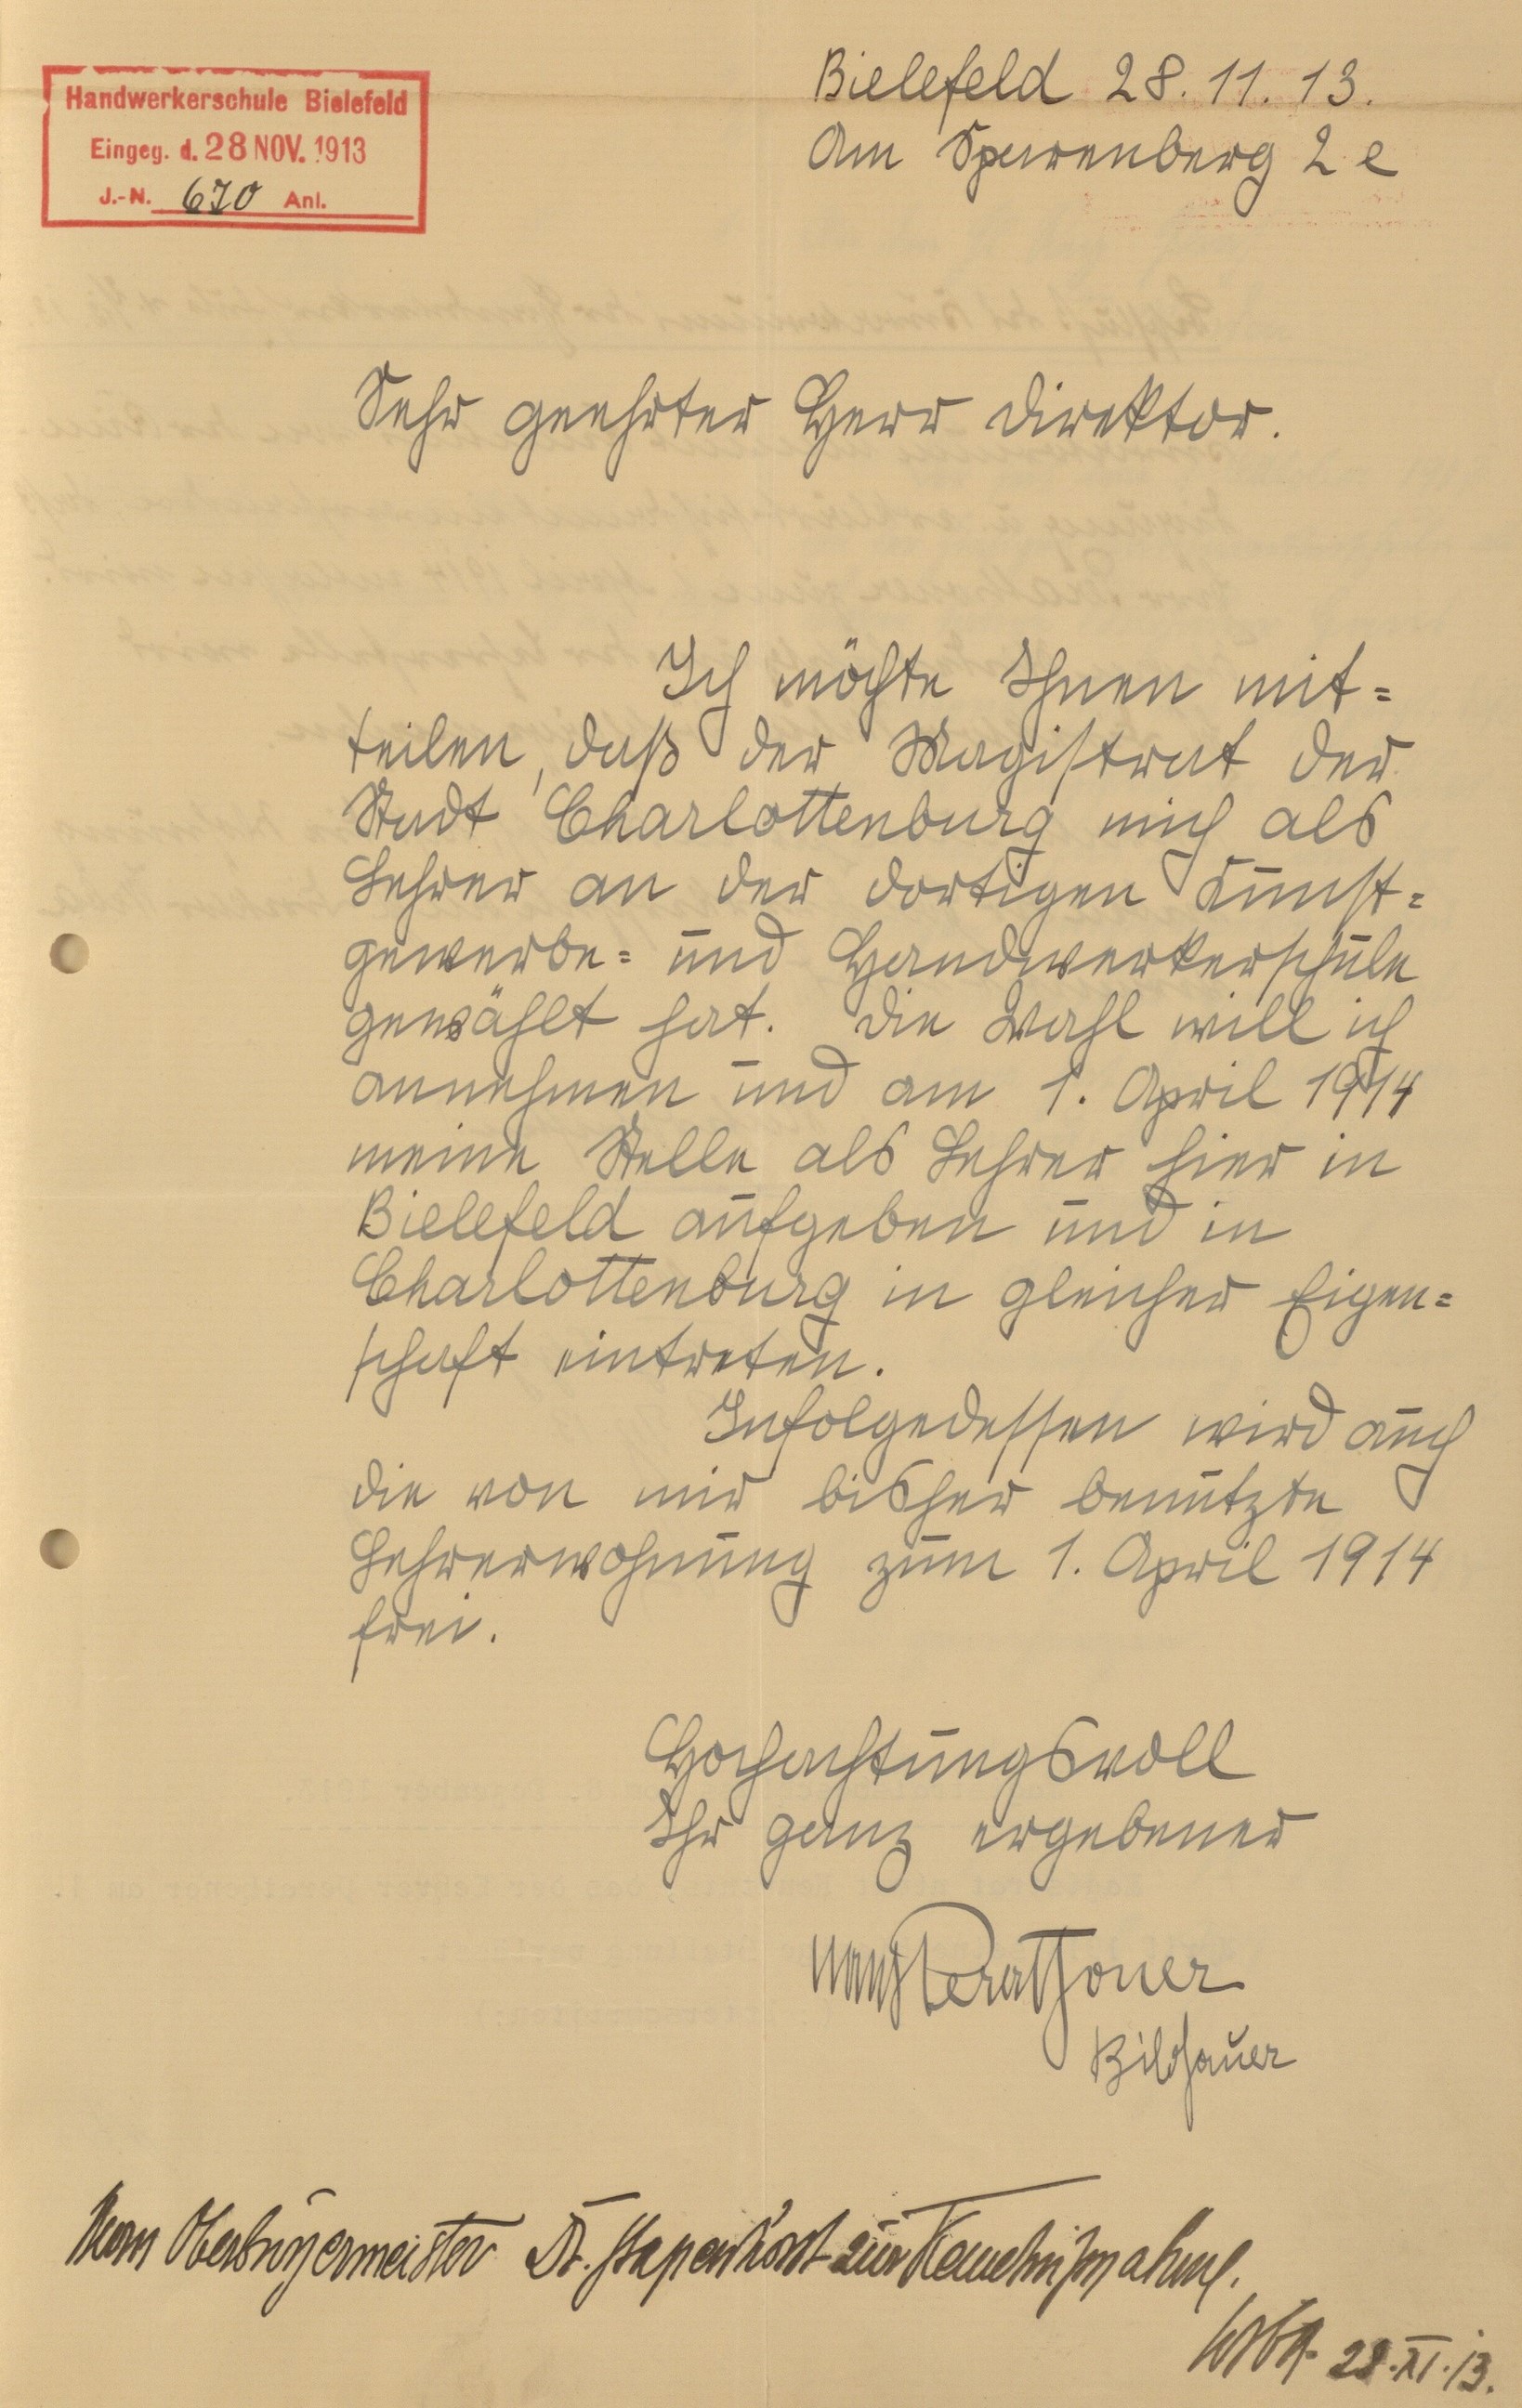 Handwerkerschule Bielefeld
Eingeg. d. 28 NOV. 1913
J.-N. 670 Anl.
Bielefeld 28. 11. 13.
Am Sparenberg 2 e
Sehr geehrter Herr Direktor.
Ich möchte Ihnen mit=
teilen, daß der Magistrat der
Stadt Charlottenburg mich als
Lehrer an der dortigen Kunst=
gewerbe= und Handwerkerschule
gewählt hat. Die Wahl will ich
annehmen und am 1. April 1914
meine Stelle als Lehrer hier in
Bielefeld aufgeben und in
Charlottenburg in gleicher Eigen=
schaft eintreten.
Infolgedessen wird auch
die von mir bisher benutzte
Lehrerwohnung zum 1. April 1914
frei.
Hochachtungsvoll
Ihr ganz ergebener
Hans Perathoner
Bildhauer
Herrn Oberbürgermeister Dr. Stapenhorst zur Kenntnißnahme.
28. XI. 13.